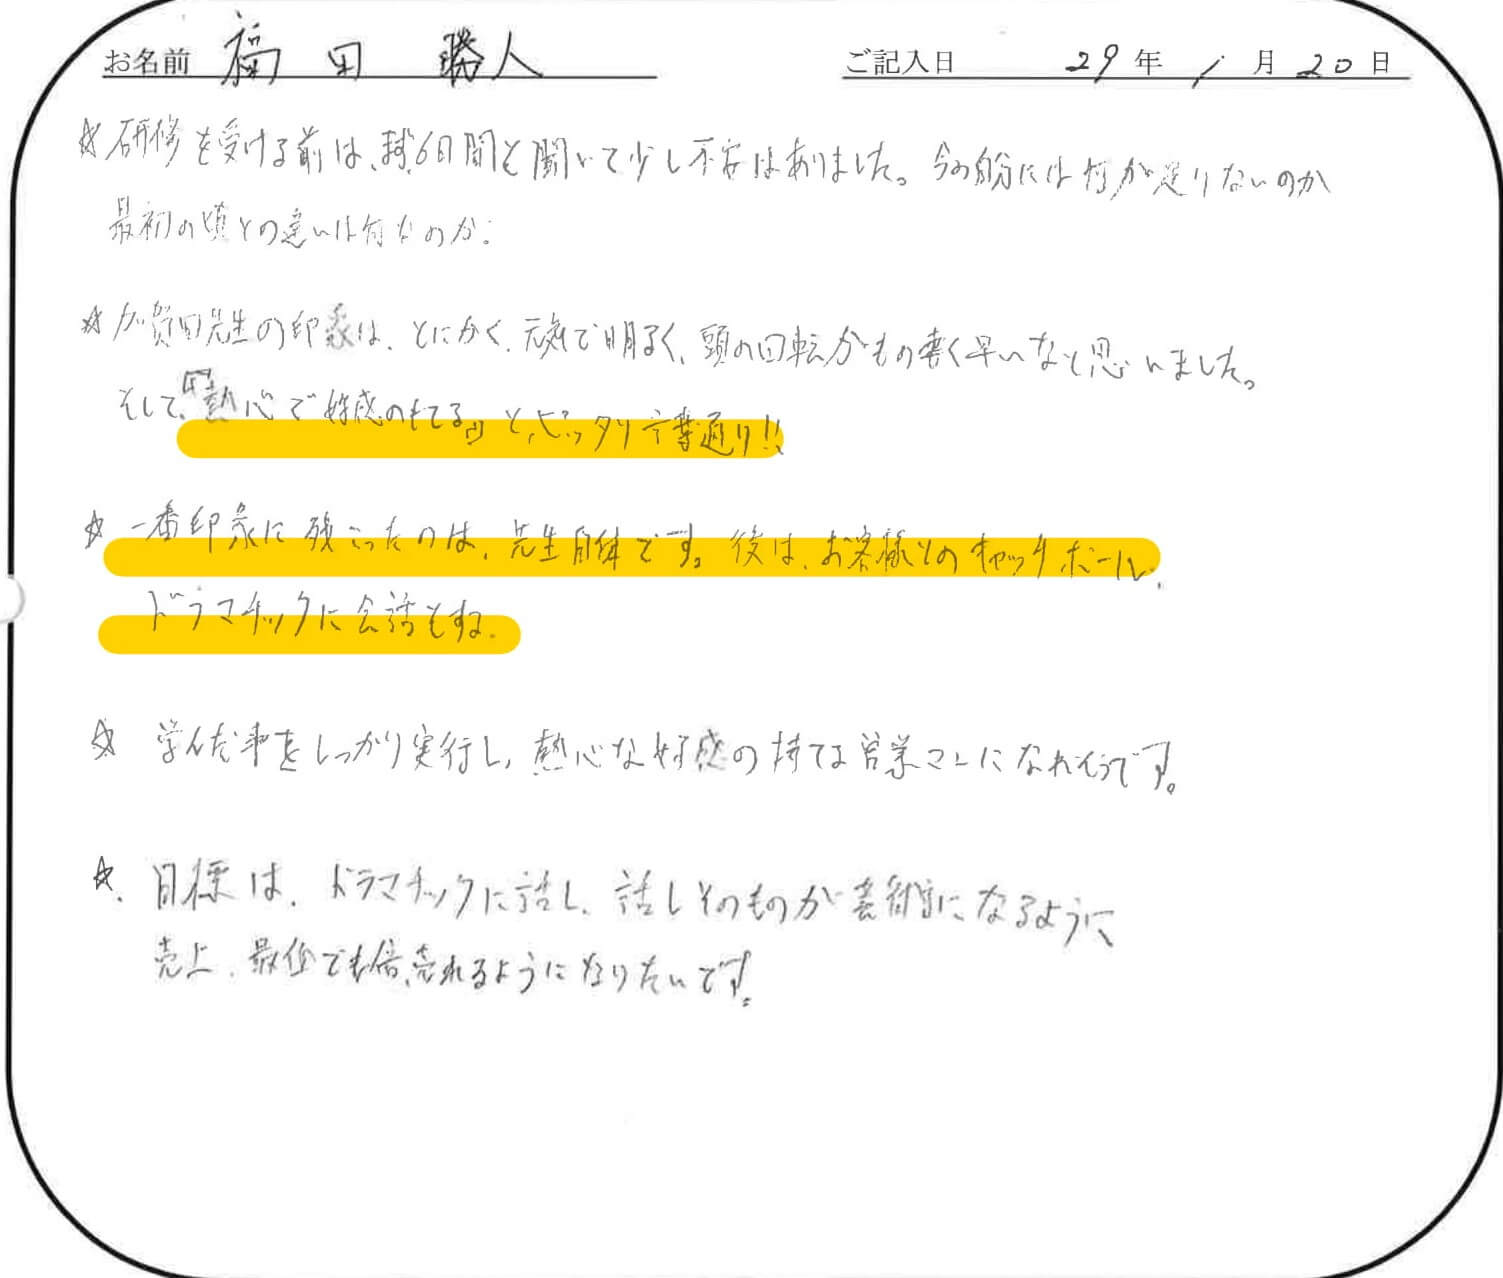 お名前 福田 勝人 ご記入日 29年1月20日
☆研修を受ける前は、6日間と聞いて少し不安はありました。今の自分には何が足りないのか
最初の頃との違いは何なのか。
☆加賀田先生の印象は、とにかく、元気で明るく、頭の回転がもの凄く早いなと思いました。
そして、『熱心で好感のもてる』と、ピッタリ言葉通り!!
☆一番印象に残ったのは、先生自体です。後は、お客様とのキャッチボール、
ドラマチックに会話もする。
☆学んだ事をしっかり実行し、熱心な好感の持てる営業マンになれそうです。
☆目標は、ドラマチックに話し、話しそのものが芸術になるように
売上、最低でも倍、売れるようになりたいです。